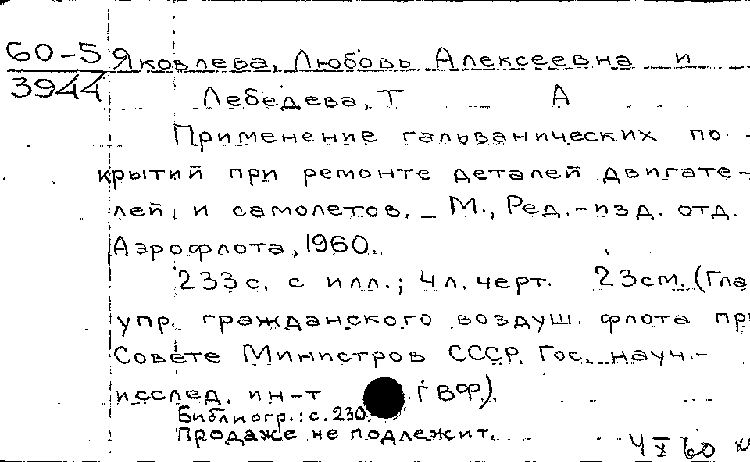 60-5 Яковлева, Любовь Алексеевна и
3944 Лебедева, Т А
Применение гальванических по-
крытий при ремонте деталей двигате-
лей и самолетов. _ М., Ред.-изд. отд.
Аэрофлота, 1960.
233 с. с илл.; 4 л. черт. 23 см. (Гла
упр. гражданского воздуш. флота при
Совете Министров СССР. Гос. науч.-
исслед. ин-т ГВФ).
Библиогр.: с. 230
Продаже не подлежит.
4 X 60